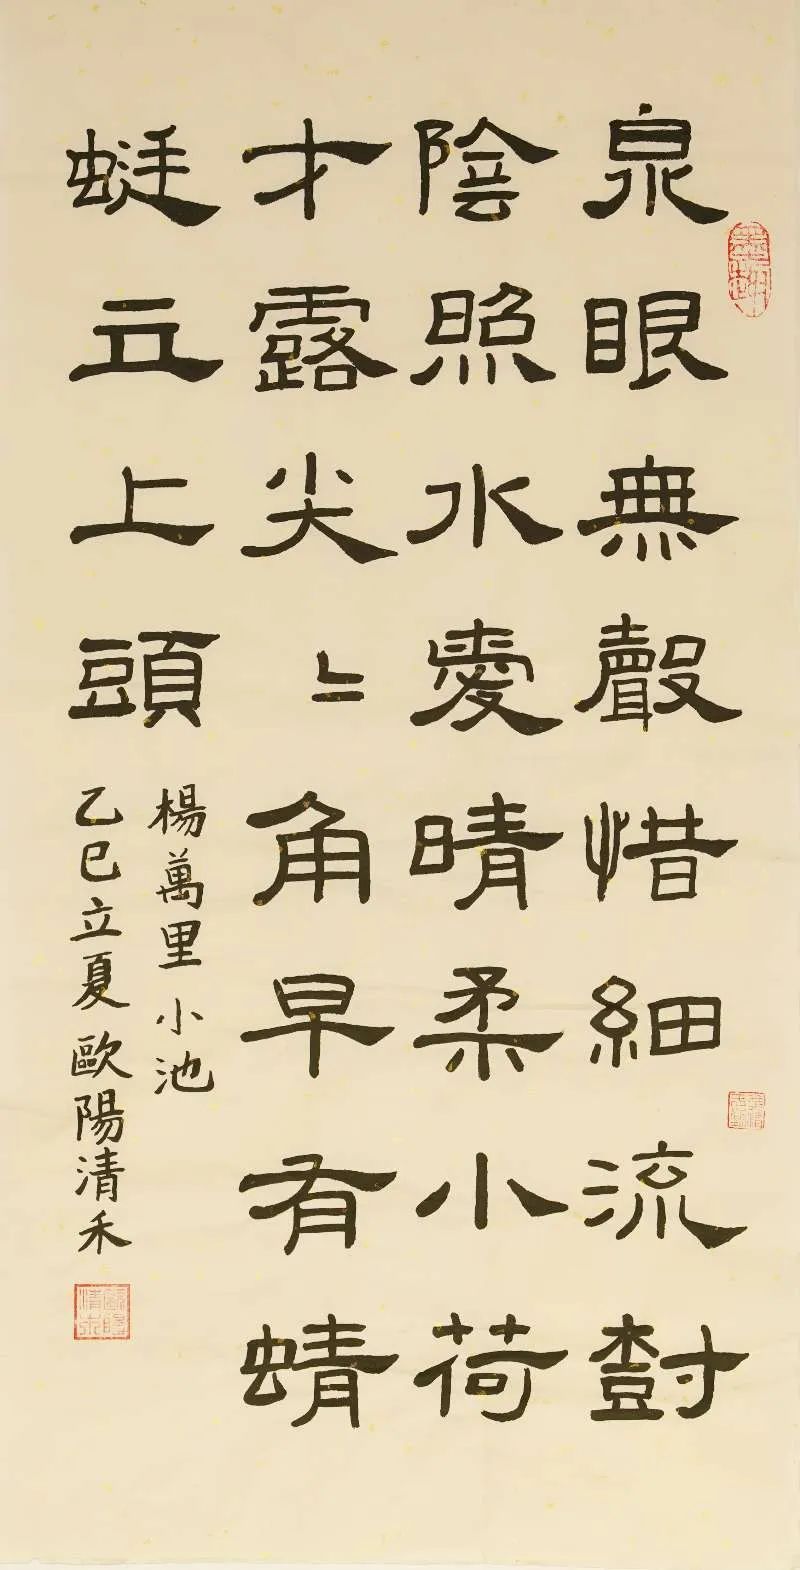 泉眼無聲惜細流樹
陰照水愛晴柔小荷
才露尖〻角早有蜻
蜓立上頭
楊萬里小池
乙巳立夏歐陽清禾
歐陽清禾